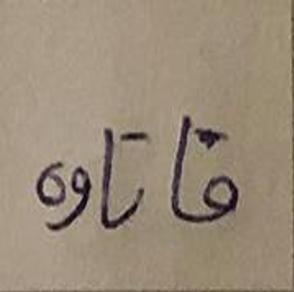 قا تاوه